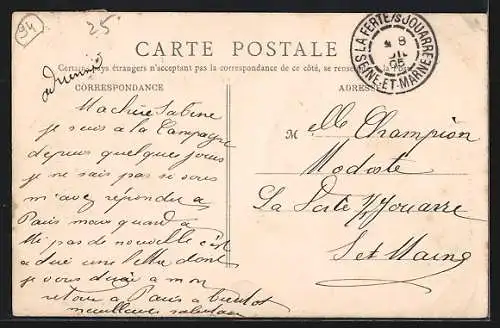 94
25
CARTE POSTALE
Certains pays étrangers n'acceptent pas la correspondance de ce côté, se renseigner à la Poste
CORRESPONDANCE
ADRESSE
LA FERTE-S-JOUARRE
8
05
SEINE-ET-MARNE
Ma chère Sabine
je suis à la Campagne
depuis quelques jours
je ne sais pas si vous
m'avez répondu a
Paris mais quand a
Mi pas de nouvelle c'est
a dire une lettre dont
je vous dirai a mon
retour a Paris a bientôt
meilleures
Melle Champion
Modiste
La Ferté s/s Jouarre
S et Marne